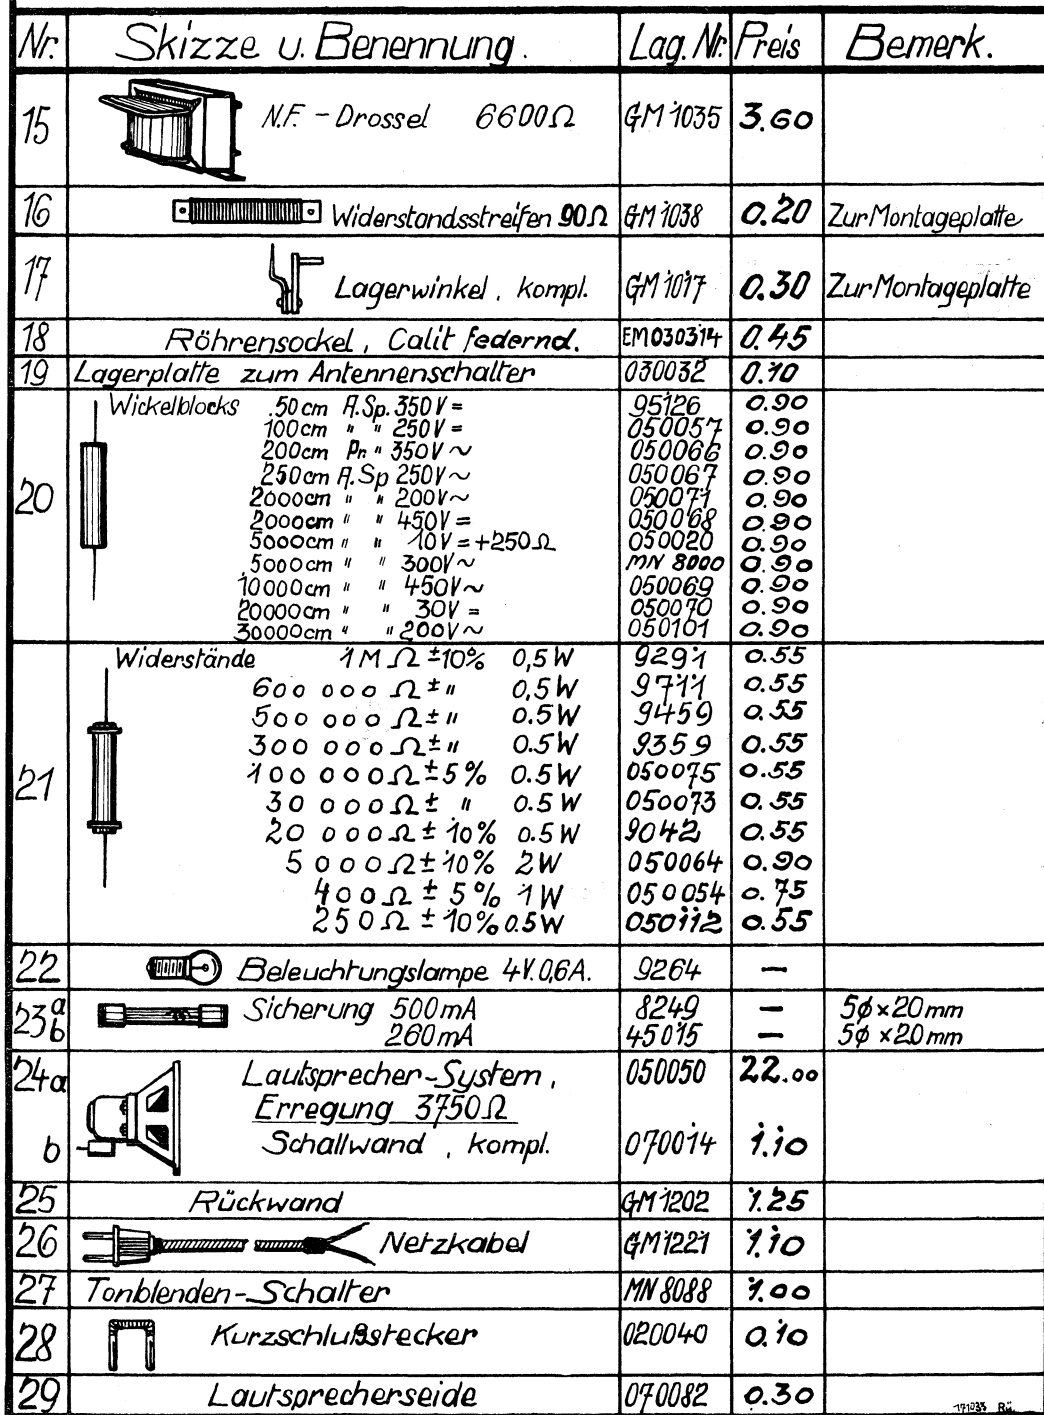 Nr. Skizze u. Benennung. Lag. Nr. Preis Bemerk.
15 N.F. - Drossel 6600Ω GM 1035 3.60
16 Widerstandsstreifen 90Ω GM 1038 0.20 Zur Montageplatte
17 Lagerwinkel, kompl. GM 1017 0.30 Zur Montageplatte
18 Röhrensockel, Calit federnd. EM030314 0.45
19 Lagerplatte zum Antennenschalter 030032 0.10
20 Wickelblocks 50cm A.Sp. 350V= 95126 0.90
100cm " " 250V= 050057 0.90
200cm Pr. " 350V~ 050066 0.90
250cm A.Sp 250V~ 050067 0.90
2000cm " " 200V~ 050071 0.90
2000cm " " 450V= 050068 0.90
5000cm " " 10V=+250Ω 050020 0.90
5000cm " " 300V~ MN 8000 0.90
10000cm " " 450V~ 050069 0.90
20000cm " " 30V= 050070 0.90
30000cm " " 200V~ 050101 0.90
21 Widerstände 1MΩ ±10% 0,5W 9291 0.55
600 000Ω ± " 0,5W 9711 0.55
500 000Ω ± " 0.5W 9459 0.55
300 000Ω ± " 0.5W 9359 0.55
100 000Ω ±5% 0.5W 050075 0.55
30 000Ω ± " 0.5W 050073 0.55
20 000Ω ±10% 0.5W 9042 0.55
5000Ω ±10% 2W 050064 0.90
400Ω ±5% 1W 050054 0.75
250Ω ±10% 0.5W 050112 0.55
22 Beleuchtungslampe 4V. 0,6A. 9264 —
23 a Sicherung 500mA 8249 — 5ϕ×20mm
b 260mA 45015 — 5ϕ×20mm
24a Lautsprecher-System, 050050 22.00
Erregung 3750Ω
b Schallwand, kompl. 070014 1.10
25 Rückwand GM1202 1.25
26 Netzkabel GM1221 1.10
27 Tonblenden-Schalter MN 8088 1.00
28 Kurzschlußstecker 020040 0.10
29 Lautsprecherseide 070082 0.30
171033 Rü.